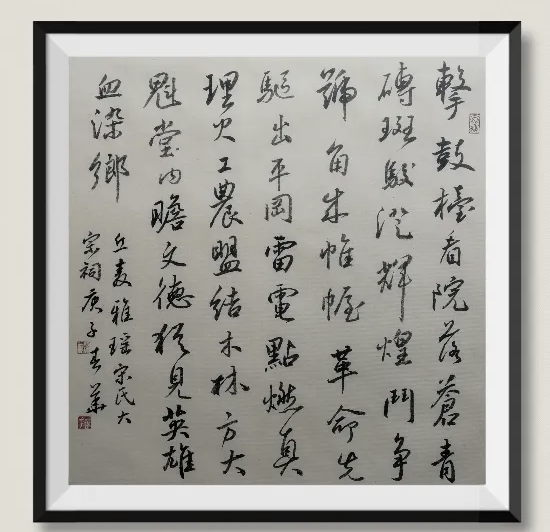 擊鼓檯看院落蒼青
磚斑駁澄輝煌鬥爭
號角生帷幄革命先
驅出平岡雷電點燃真
理火工農盟結木林方大
魁堂內瞻文德猶見英雄
血染鄉
丘麦雅瑶宋氏大
宗祠庚子春